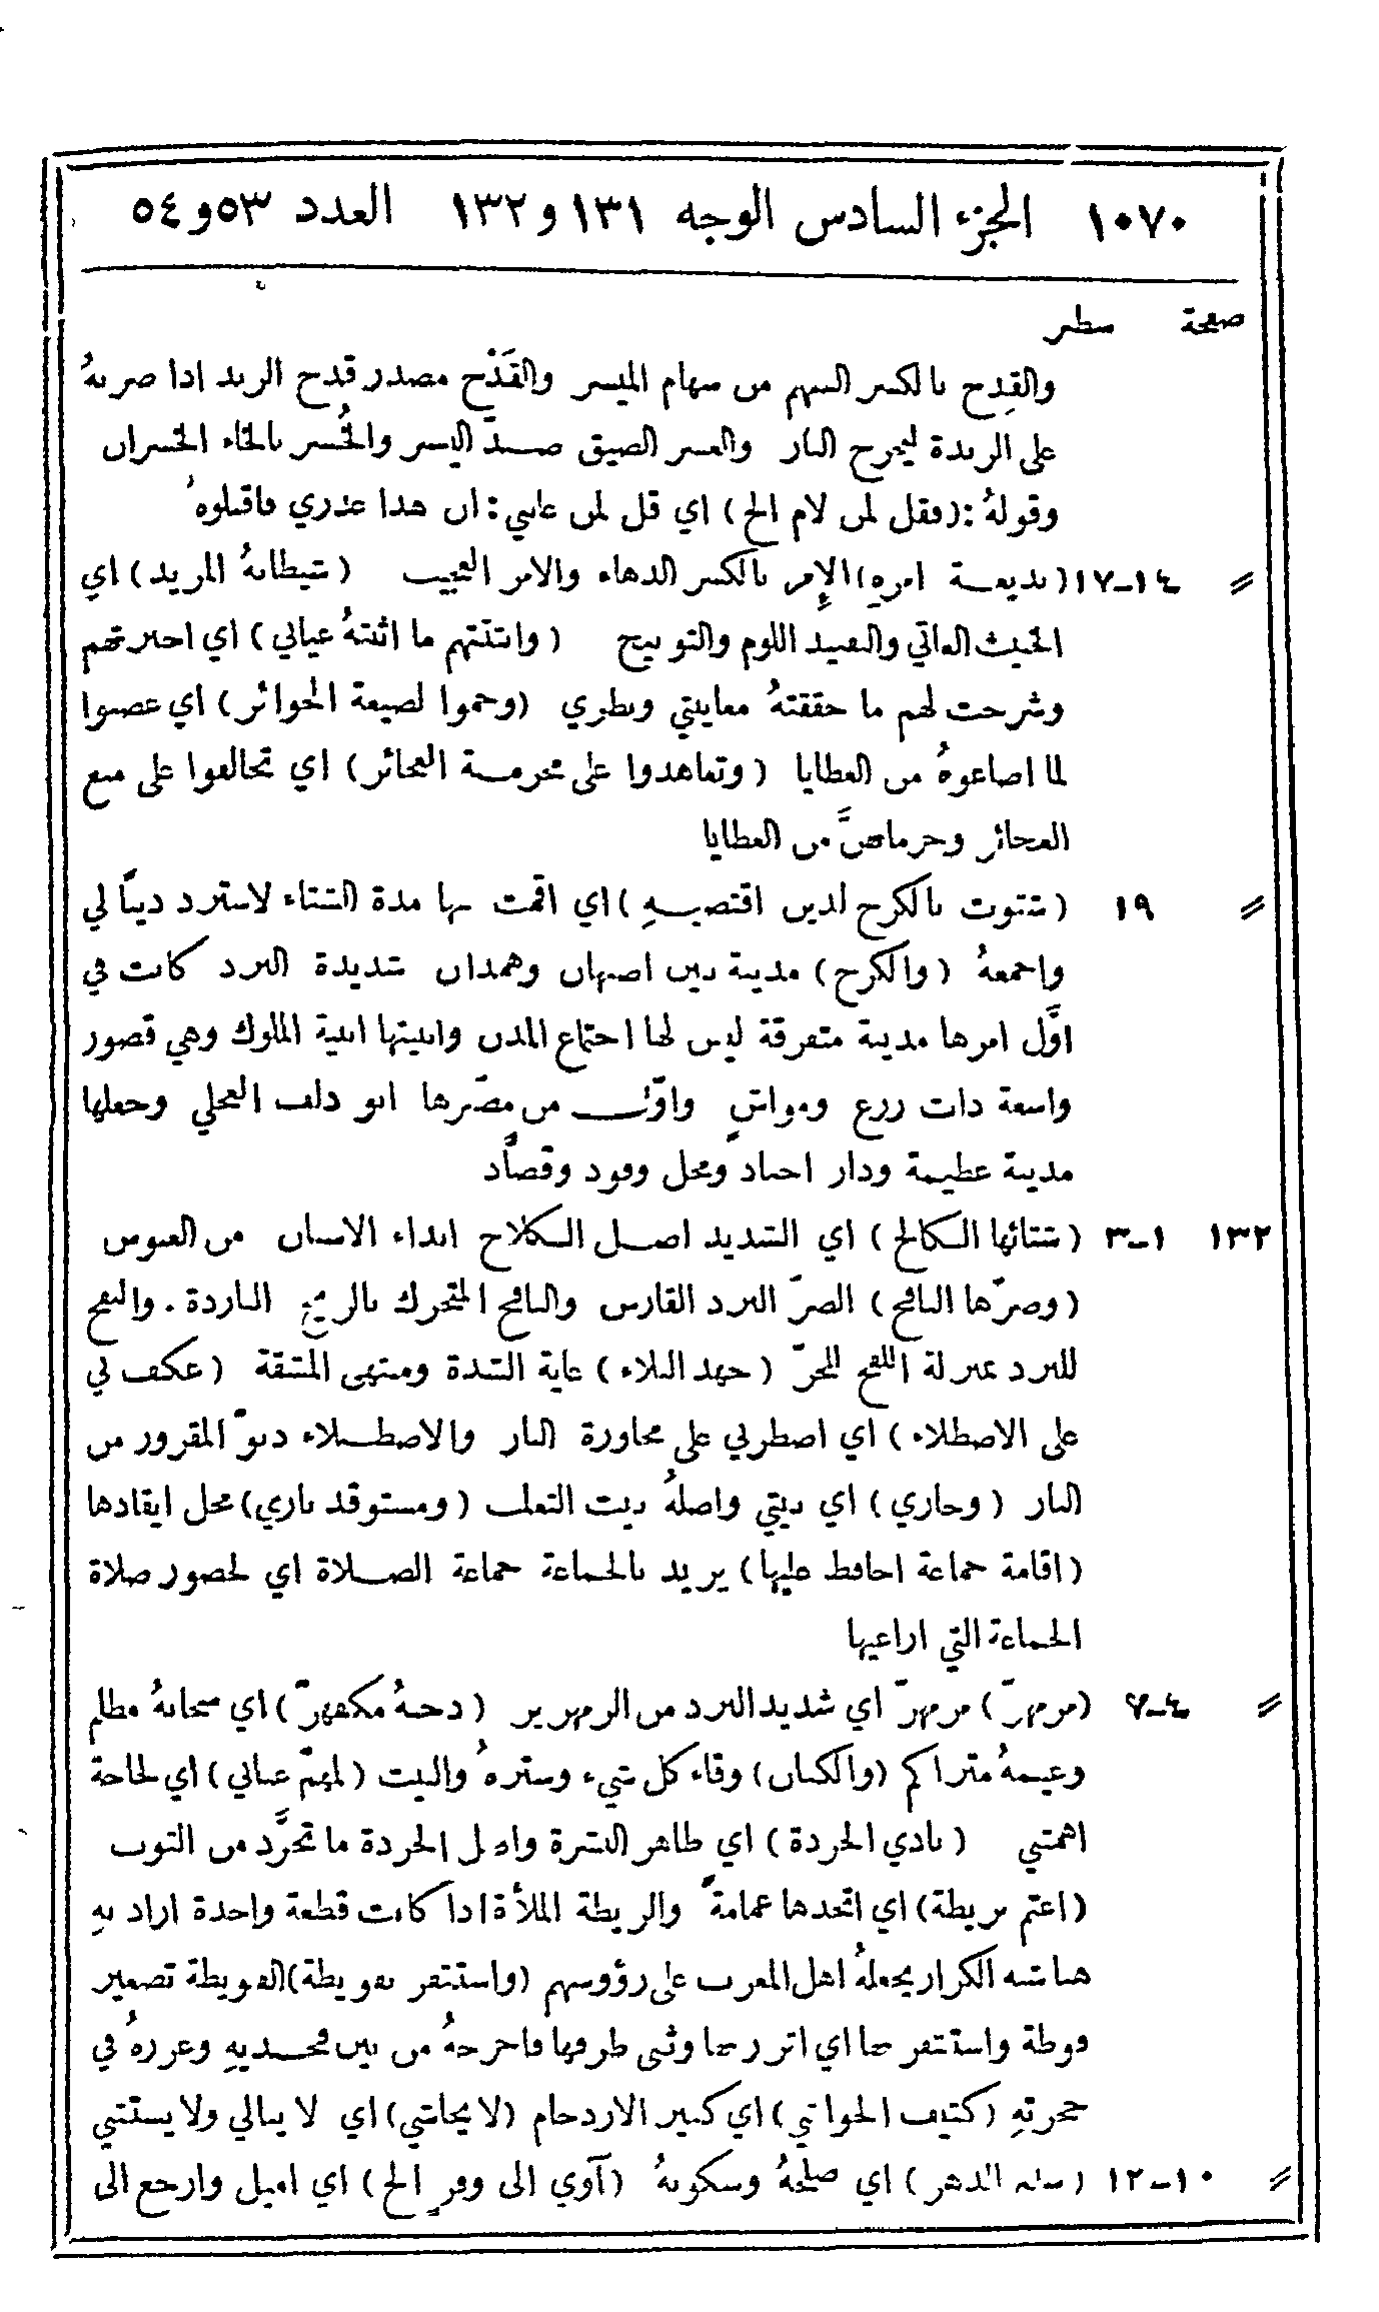 ١٠٧٠ الجزء السادس الوجه ١٣١ و١٣٢ العدد ٥٣ و٥٤
صفحة سطر
والقِدح بالكسر السهم من سهام الميسر والقَدْح مصدر قدح الزند اذا ضربهُ
على الزندة ليخرج النار والعسر الضيق ضدّ اليسر والخُسر بالخاء الخسران
وقولهُ :(فقل لمن لام الخ) اي قل لمن عابني: ان هذا عذري فاقبلوهُ
〃 ١٤-١٧ (بديعة امرهِ) الإِمر بالكسر الدهاء والامر العجيب (شيطانهُ المريد) اي
الخبيث العاتي والتفنيد اللوم والتوبيخ (وابثثتهم ما اثبتهُ عياني) اي اخبرتهم
وشرحت لهم ما حققتهُ معاينتي ونظري (وجموا لضيعة الجوائز) اي غضبوا
لما اضاعوهُ من العطايا (وتعاهدوا على محرمة العجائز) اي تحالفوا على منع
العجائز وحرمانهنَّ من العطايا
〃 ١٩ (شتوت بالكرج لدين اقتضيهِ) اي اقمت بها مدة الشتاء لاسترد ديناً لي
واجمعهُ (والكرج) مدينة بين اصبهان وهمذان شديدة البرد كانت في
اوَّل امرها مدينة متفرقة ليس لها اجتماع المدن وابنيتها ابنية الملوك وهي قصور
واسعة ذات زرع ومواشٍ واوّل من مصّرها ابو دلف العجلي وجعلها
مدينة عظيمة ودار اجناد ومحل وفود وقصَّاد
١٣٢ ١-٣ (شتائها الكالح) اي الشديد اصل الكلاح ابداء الاسنان من العبوس
(وصرّها النافح) الصرّ البرد القارس والنافح المتحرك بالريح الباردة. والنفح
للبرد بمنزلة اللفح للحرّ (جهد البلاء) غاية الشدة ومنتهى المشقة (عكف بي
على الاصطلاء) اي اضطرني على مجاورة النار والاصطلاء دنوّ المقرور من
النار (وجاري) اي بيتي واصلهُ بيت الثعلب (ومستوقد ناري) محل ايقادها
(اقامة جماعة احافظ عليها) يريد بالجماعة جماعة الصلاة اي لحضور صلاة
الجماعة التي اراعيها
〃 ٤-٧ (مزمهرّ) مزمهرّ اي شديد البرد من الزمهرير (دجنهُ مكفهرّ) اي سحابهُ مظلم
وغيمهُ متراكم (والكنان) وقاء كل شيء وسترهُ والبيت (لمهمّ عناني) اي لحاجة
اهمتني (بادي الجردة) اي ظاهر البشرة واصل الجردة ما تجرَّد من الثوب
(اعتم بريطة) اي اتخذها عمامةً والريطة الملأة اذا كانت قطعة واحدة اراد بهِ
هنا شبه الكرار يجعلهُ اهل المغرب على رؤوسهم (واستثفر بفويطة) الفويطة تصغير
فوطة واستثفر بها اي اتزر بها وثنى طرفها فاخرجهُ من بين فخذيهِ وغرزهُ في
حجزتهِ (كثيف الحواشي) اي كثير الازدحام (لا يحاشي) اي لا يبالي ولا يستثني
〃 ١٠-١٢ (سلم الدهر) اي صلحهُ وسكونهُ (آوي الى وفرٍ الخ) اي اميل وارجع الى